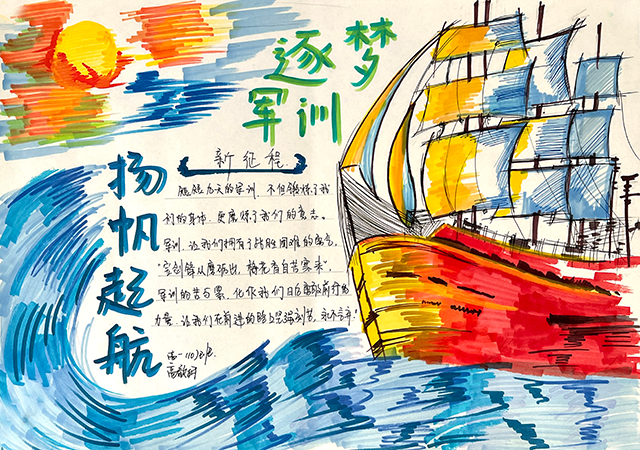 逐梦
军训
扬帆起航
新征程
短短几天的军训，不但锻炼了我
们的身体，更磨炼了我们的意志。
军训，让我们拥有了战胜困难的勇气，
“宝剑锋从磨砺出，梅花香自苦寒来”，
军训的苦与累，化作我们日后奋力前行的
力量，让我们在前进的路上坚强刻苦，永不言弃！
高一(10)